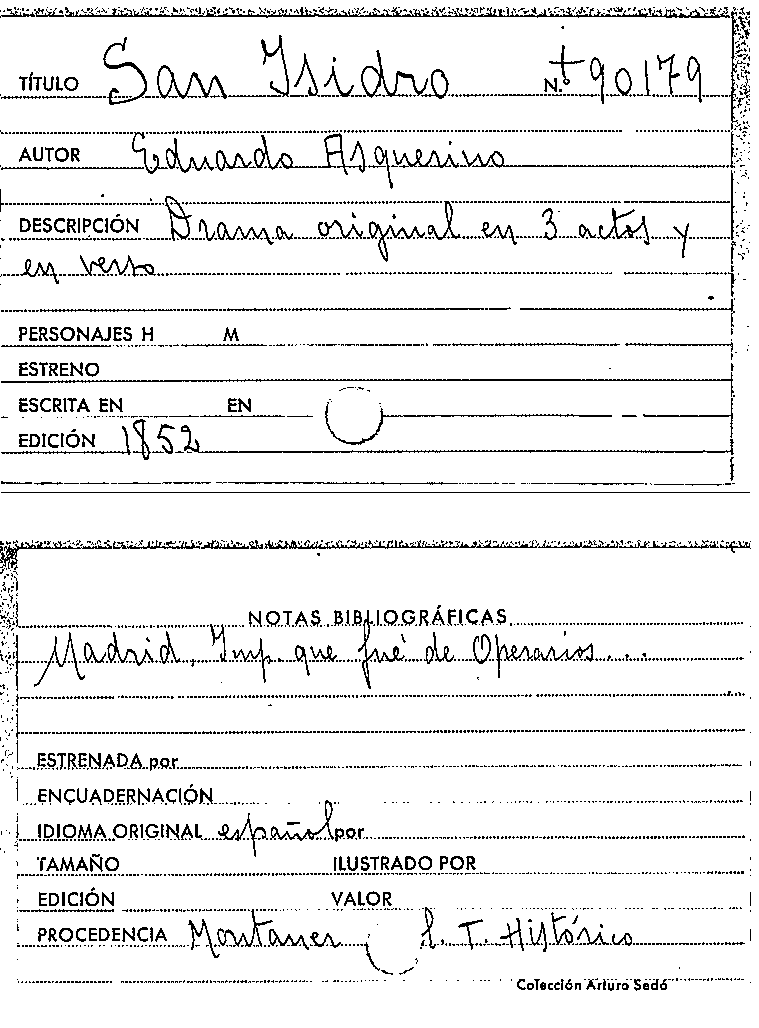 TÍTULO San Isidro N.º t 90179
AUTOR Eduardo Asquerino
DESCRIPCIÓN Drama original en 3 actos y
en verso
PERSONAJES H M
ESTRENO
ESCRITA EN EN
EDICIÓN 1852
NOTAS BIBLIOGRÁFICAS
Madrid, Imp. que fué de Operarios...
ESTRENADA por
ENCUADERNACIÓN
IDIOMA ORIGINAL español por
TAMAÑO ILUSTRADO POR
EDICIÓN VALOR
PROCEDENCIA Montaner T. Histórico
Colección Arturo Sedó